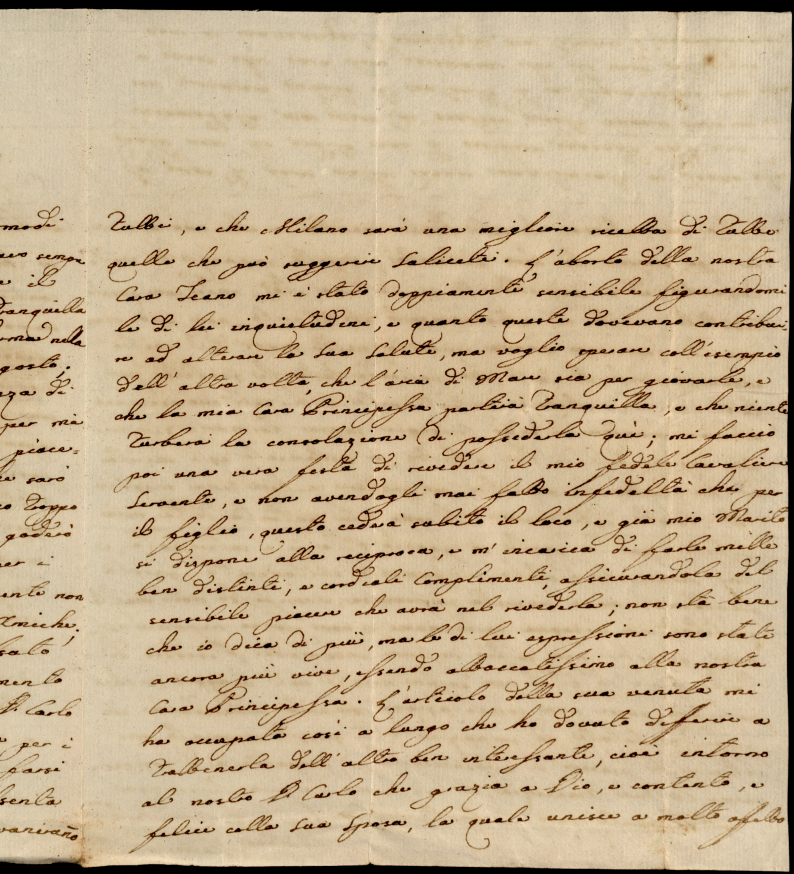 modi
sempre
il
Tranquilla
nella
agosto,
di
per me
piace=
sarò
Troppo
goderò
per i
ente non
Amiche,
sato
mento
D. Carlo
per i
farsi
senta
svaniranno
Tutti, e che Milano sarà una migliore ricetta di Tutte
quelle che può suggerire Saliceti. L'aborto della nostra
Cara Teano mi è stato doppiamente sensibile figurandomi
le di lei inquietudini, e quanto queste dovevano contribui
re ad alterare la Sua Salute, ma voglio sperare coll'esempio
dell'altra volta, che l'aria di Mare sia per giovarle, e
che la mia Cara Principessa partirà Tranquilla, e che niente
Turberà la consolazione di possederla quì; mi faccio
poi una vera festa di rivedere il mio fedele Cavaliere
Servente, e non avendogli mai fatto infedeltà che per
il figlio, questo cederà subito il loco, e già mio Marito
si dispone alla reciproca, e m'incarica di farle mille
ben distinti, e cordiali Complimenti, assicurandola del
sensibile piacere che avrà nel rivederla; non stà bene
che io dica di più, ma le di lui espressioni sono state
ancora più vive, essendo attaccatissimo alla nostra
Cara Principessa. L'articolo della sua venuta mi
ha occupata così a lungo che ho dovuto differire a
Trattenerla dell'altro ben interessante, cioè intorno
al nostro D. Carlo che grazia a Dio, e contento, e
felice colla Sua Sposa, la quale unisce a molto affetto